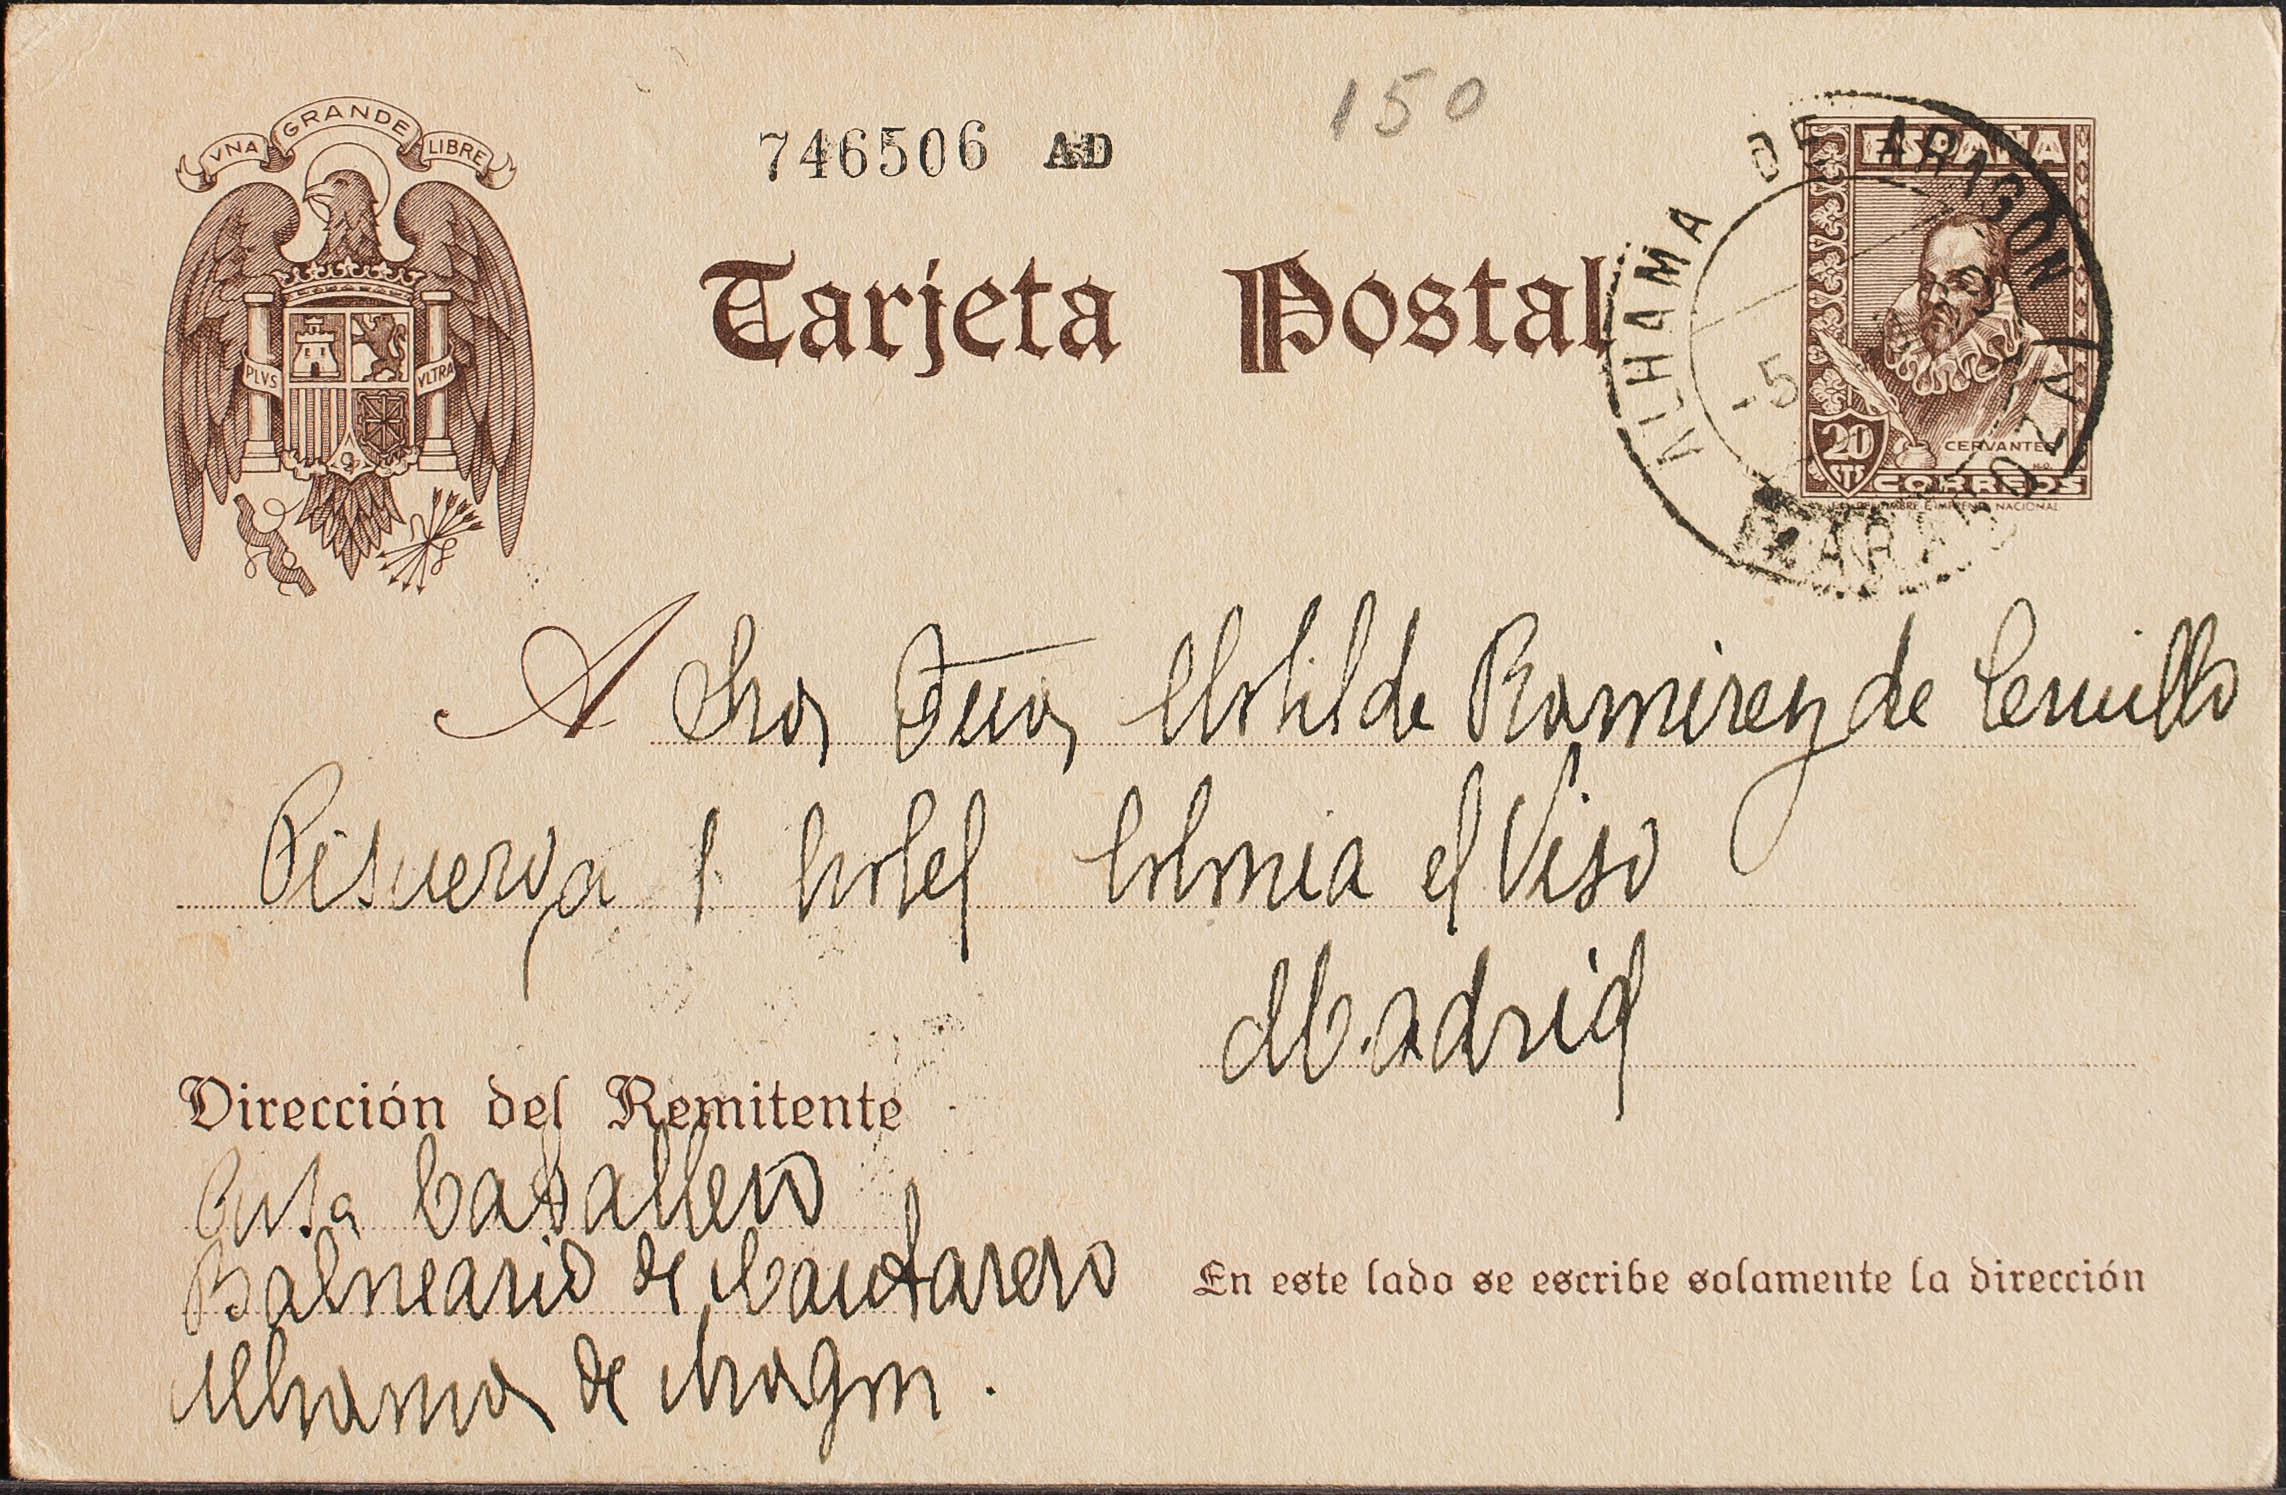 VNA GRANDE LIBRE
746506 AD
150
ESPAÑA
ALHAMA DE ARAGON
PLVS VLTRA
Tarjeta Postal
-5
20 CTS
CERVANTES
CORREOS
A Sra Dña Clotilde Ramirez de
Pisuerga 1 hotel Colonia el Viso
Madrid
Dirección del Remitente
Caballero
Balneario de Cantarero
Alhama de Aragon.
En este lado se escribe solamente la dirección